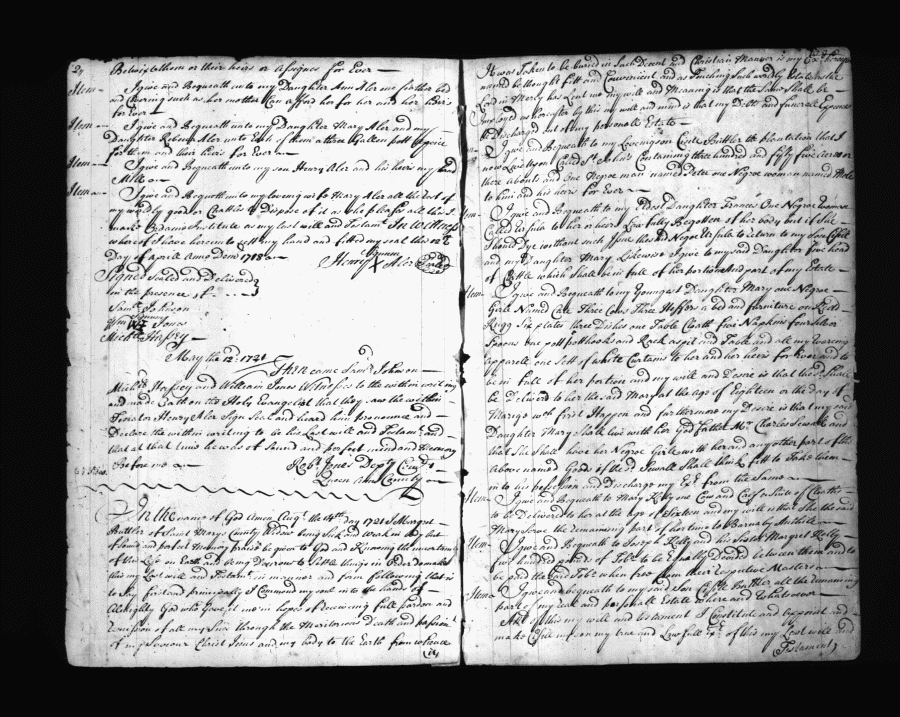 29
Betwixt them or their heirs or assignes for Ever —
Item — I give and Bequeath unto my Daughter Ann Aler one feather bed
and Covering such as her mother Can afford her for her and her heirs
for Ever —
Item — I give and Bequeath unto my Daughter Mary Aler and my
Daughter Rebeca Aler unto Each of them a three Gallon pott
for them and their heirs for Ever —
Item — I give and Bequeath unto my son Henry Aler and his heirs my hand
Mill —
Item — I give and Bequeath unto my loveing wife Mary Aler all the rest of
my worldly good or Chattles to Dispose of it as she pleases all this I
make Ordain Institute as my last will and Testamt. In Witness
whereof I have hereunto sett my hand and fitted my seal this
Day of April Anno Dom 1718 —
Henry X Aler
Signed Sealed and Delivered
in the presence of
Saml. Johnson
Wm. Jones
Michll. Hassey
May the 12th. 1721
Then came Saml. Johnson —
Michll. Hassey and William Jones Witnesses to the within writing
and made Oath on the Holy Evangelist that they saw the within
Testator Henry Aler Sign Seal and heard him pronounce and —
Declare the within writing to be his Last will and Testamt. and
that at that time he was of Sound and perfect mind and Memory
Before me —
Robt. Jones Depty. Comry. of
Queen Anns County —
In the name of God Amen Augt. the 14th. day 1721 I Margret
Buttler of Saint Marys County Widow being Sick and Weak in body but
of Sound and perfect Memory praise be given to God and Knowing the uncertainty
of this Life on Earth and being Desirous to Settle things in Order do make
this my Last will and Testamt. in manner and form following that is
to Say first and principally I Commend my soul in to the hands of
Almighty God who Gave it me in hopes of Receiving full pardon and
Remission of all my Sins through the Meritorious Death and passion
of my Saviour Christ Jesus and my body to the Earth from whence
(it)
It was Taken to be buried in Such Decent and Christian Manner as my Exr. hereafter
named be thought fitt and Convenient and as Touching Such worldly Estate as the
Lord in Mercy has Lent me my will and Meaning is that the Same Shall be —
Imployed as hereafter by this my will and mind is that my Debts and funerall Expences
be Discharged out of my personall Estate —
I give and Bequeath to my Loveing son Cecile Buttler the plantation that I
now Live upon Called St. Containing three hundred and fifty five Acres or
there abouts and one Negroe man named Peter one Negroe woman named Moll
to him and his heirs for Ever —
Item — I give and Bequeath to my Eldest Daughter Frances One Negroe woman
Called to her or heirs Lawfully Begotten of her body but if She
Should Dye without such Issue then the Negroe to return to my Son Cecile
and my Daughter Mary Likewise I give to my said Daughter five head
of Cattle which Shall be in full of her portion and part of my Estate —
Item — I give and Bequeath to my Youngest Daughter Mary one Negroe —
Girle Named Cate Three Cows Three Heffers a bed and furniture one Redd
Rugg Six plates three Dishes one Table Cloath five Napkins four Silver
Spoons one pott pott hooks and Rack a spit and Table and all my wearing
apparell one Sett of white Curtains to her and her heirs for Ever and to
be in full of her portion and my will and Desire is that they Shall
be Delivered to her the said Mary at the age of Eighteen or the day of
Marige wch. first Happen and furthermore my Desire is that my said
Daughter Mary Shall live with her God father Mr. Charles Sewall and
that She Shall have her Negroe Girle with her and any other part of the
above named Goods if the sd. Sewall Shall think fitt to Take them —
in to his possession and Discharge my Exr. from the Same —
Item — I give and Bequeath to Mary Kelly one Cow and Calf or Suite of Cloaths —
to be Delivered to her at the Age of Sixteen and my will is that She the said
Mary serve the Remaining part of her time to Barnaby —
Item — I give and Bequeath to Joseph Kelly and his Sister Margret Kelly
five hundred pounds of Tobo. to be Equally Devided between them and to
be paid the said Tobo. when free from their Respective Masters —
Item — I give and bequeath to my said Son Cecile Buttler all the remaining
part of my real and personall Estate where and whatsoever —
And of this my will and testament I Constitute and appoint and
make Cecile my son my true and Lawfull Exr. of this my Last will and
(Testament)